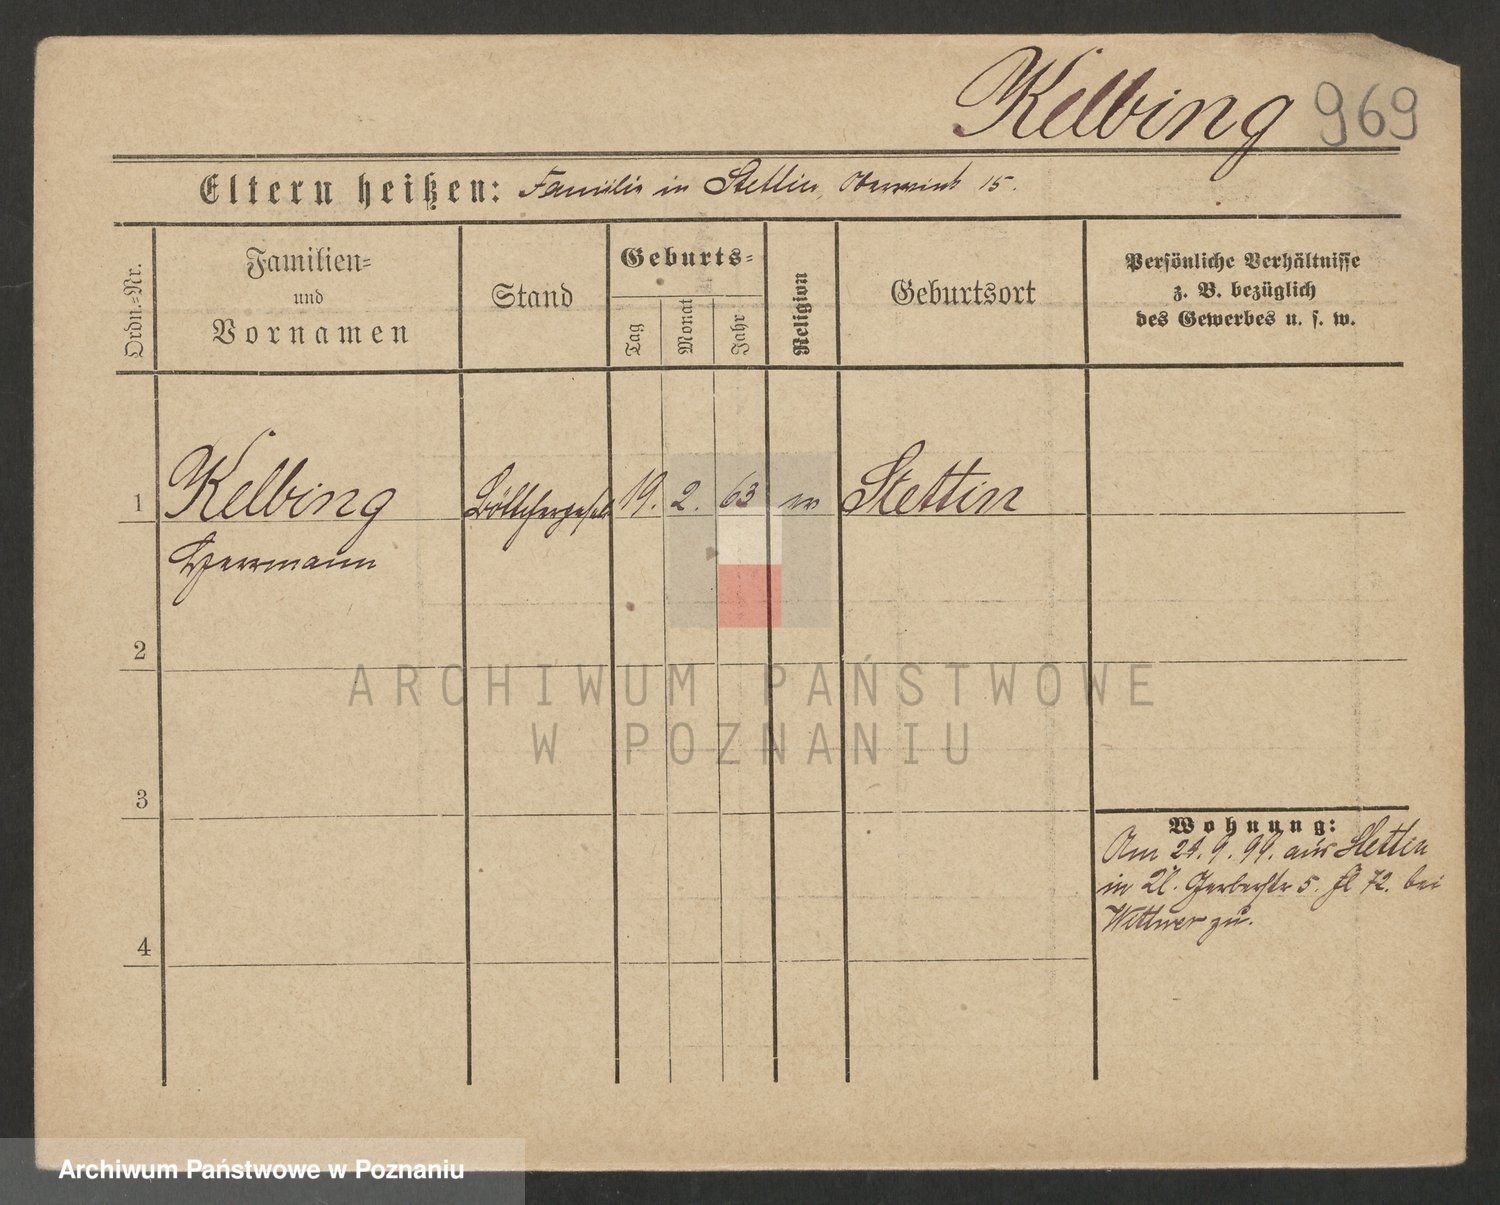 Kelbing 969
Eltern heißen: Familie in Stettin, 15.
Ordn.-Nr.
Familien-
und
Vornamen
Stand
Geburts-
Tag
Monat
Jahr
Religion
Geburtsort
Persönliche Verhältnisse
z. B. bezüglich
des Gewerbes u. s. w.
1 Kelbing Böttchergesell 19. 2. 63 ev Stettin
Herrmann
2
ARCHIWUM PAŃSTWOWE
W POZNANIU
3
Wohnung:
Am 21. 9. 99. aus Stettin
in Gerberstr 5. bei
Wittwer zu.
4
Archiwum Państwowe w Poznaniu